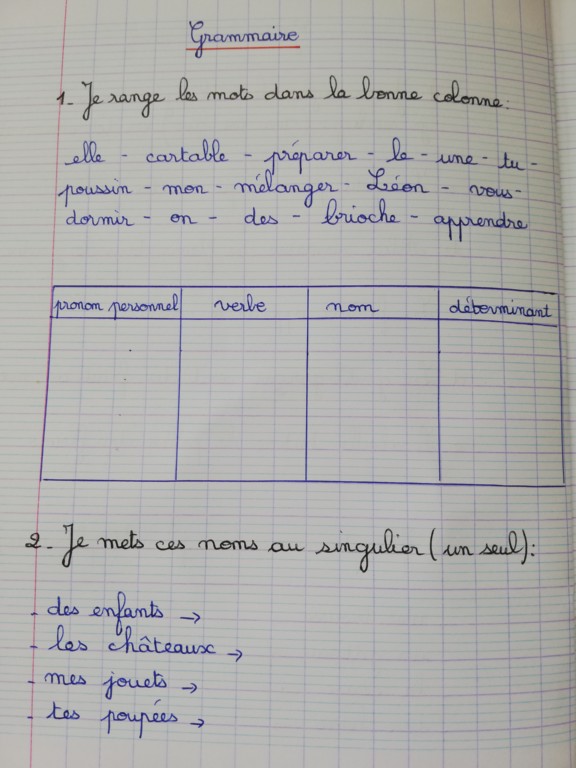 Grammaire
1- Je range les mots dans la bonne colonne:
elle - cartable - préparer - le - une - tu -
poussin - mon - mélanger - Léon - vous -
dormir - on - des - brioche - apprendre
pronom personnel verbe nom déterminant
2- Je mets ces noms au singulier (un seul):
- des enfants →
- les châteaux →
- mes jouets →
- tes poupées →